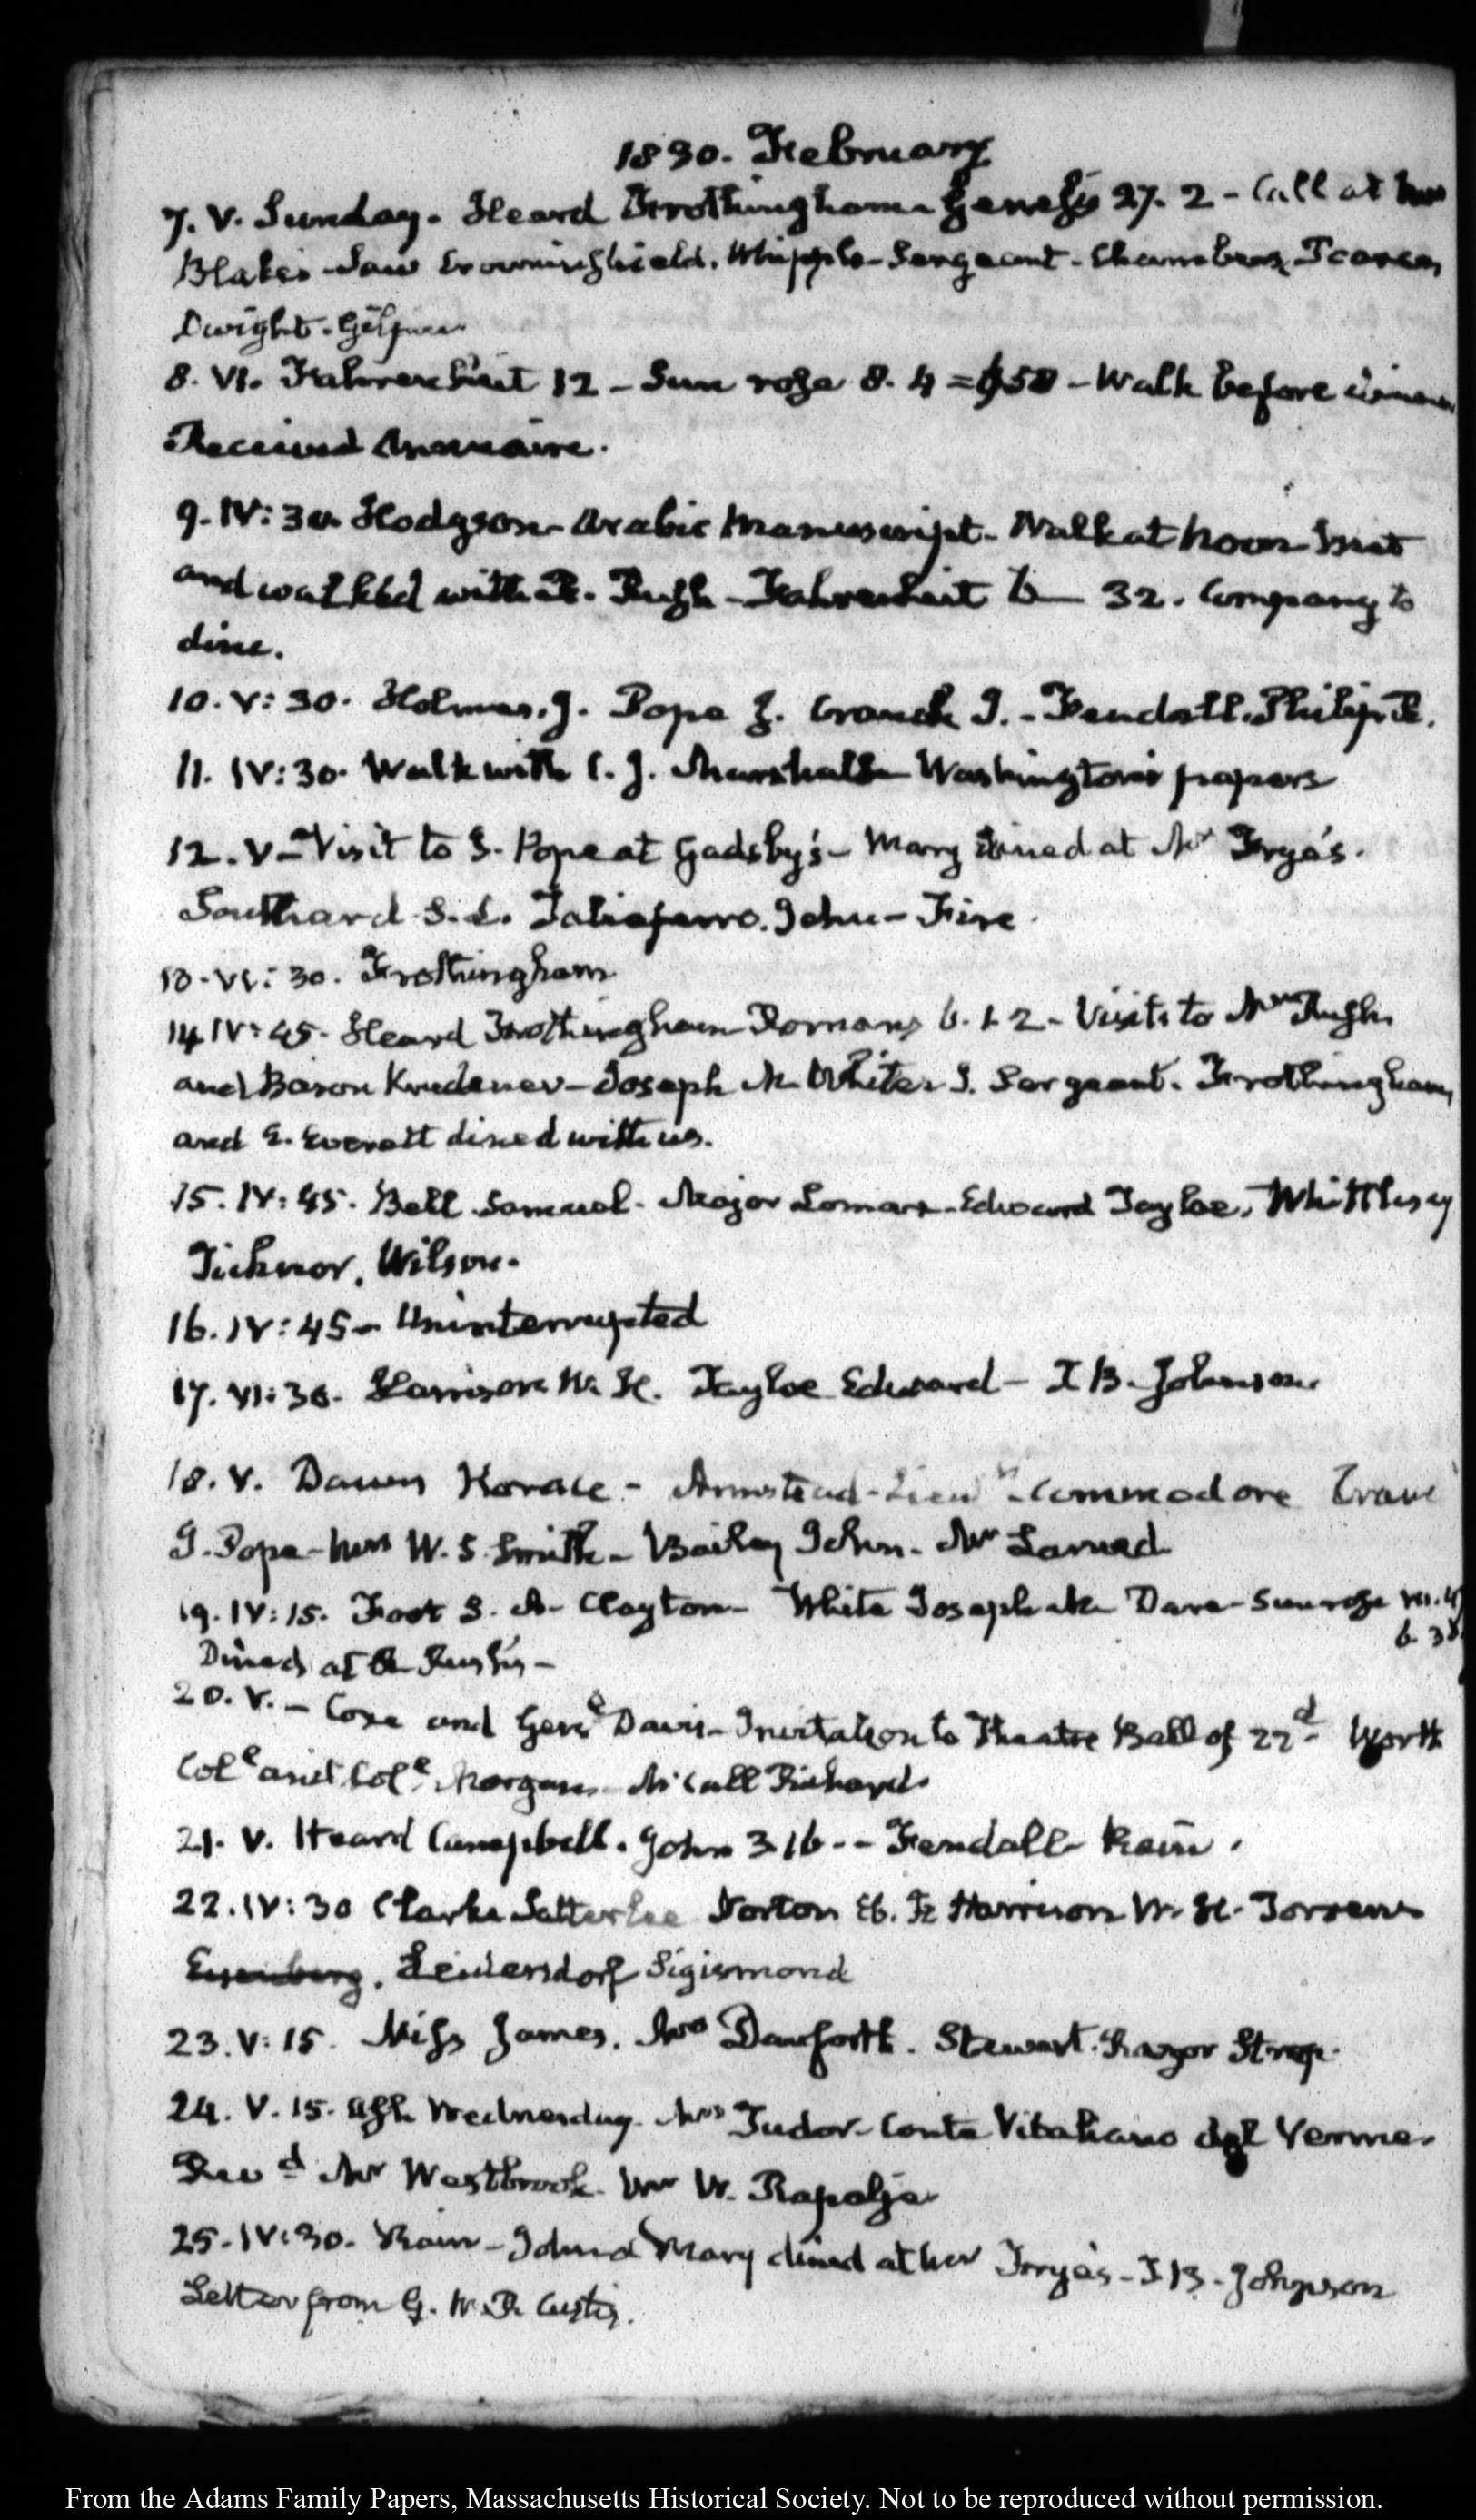 1830. February
7. V. Sunday. Heard Frothingham Genesis 27. 2 - Call at
Blakes - Saw Crowninshield. Whipple - Sergeant - Chambers
Dwight. Gilpin
8. VI. Fahrenheit 12 - Sun rose 8. 4 = 658 - Walk before dinner
Received Annuaire.
9. IV: 30. Hodgson - Arabic Manuscript - Walk at noon - met
and walked with R. Rush - Fahrenheit 6 - 32. Company to
dine.
10. V: 30. Holmes. J. Pope J. Cranch J. - Fendall. Philip R.
11. IV: 30. Walk with C. J. Marshall - Washington's papers
12. V - Visit to J. Pope at Gadsby's - Mary dined at Mr Frye's.
Southard S. L. Taliaferro. John - Fire.
13. VI: 30. Frothingham
14. IV: 45. Heard Frothingham Romans 6. 1. 2 - Visits to Mr Rush
and Baron Krudener - Joseph M White J. Sergeant. Frothingham,
and E. Everett dined with us.
15. IV: 45. Bell Samuel. Major Lomax - Edward Tayloe. Whittlesey
Ticknor, Wilson.
16. IV: 45 - Uninterrupted
17. VI: 30. Harrison W. H. Tayloe Edward - J B. Johnson.
18. V. Dawes Horace - Armstead - Lieut - Commodore Crane
J. Pope - Mrs W. S. Smith - Bailey John - Mr Larned
19. IV: 15. Foot S. A - Clayton - White Joseph M Dave - Sun rose
6. 38
Dined at R Rush's -
20. V. - Coxe and Genl Davis - Invitation to Theatre Ball of 22d Worth
Coll and Coll Morgan - McCall Richard.
21. V. Heard Campbell. John 3. 16 - - Fendall - Rain.
22. IV: 30 Clarke Satterlee Norton Eb. F. Harrison W. H. Torrens
Leidersdorf Sigismond
23. V: 15. Miss James. Mrs Danforth. Stewart. Razor Strop.
24. V. 15. Ash Wednesday - Mrs Tudor - Conte Vitaliano dal Verme.
Revd Mr Westbrook. Mr W. Rapalje
25. IV: 30. Rain - John and Mary dined at Mr Frye's - J B. Johnson
Letter from G. W. P. Custis.
From the Adams Family Papers, Massachusetts Historical Society. Not to be reproduced without permission.